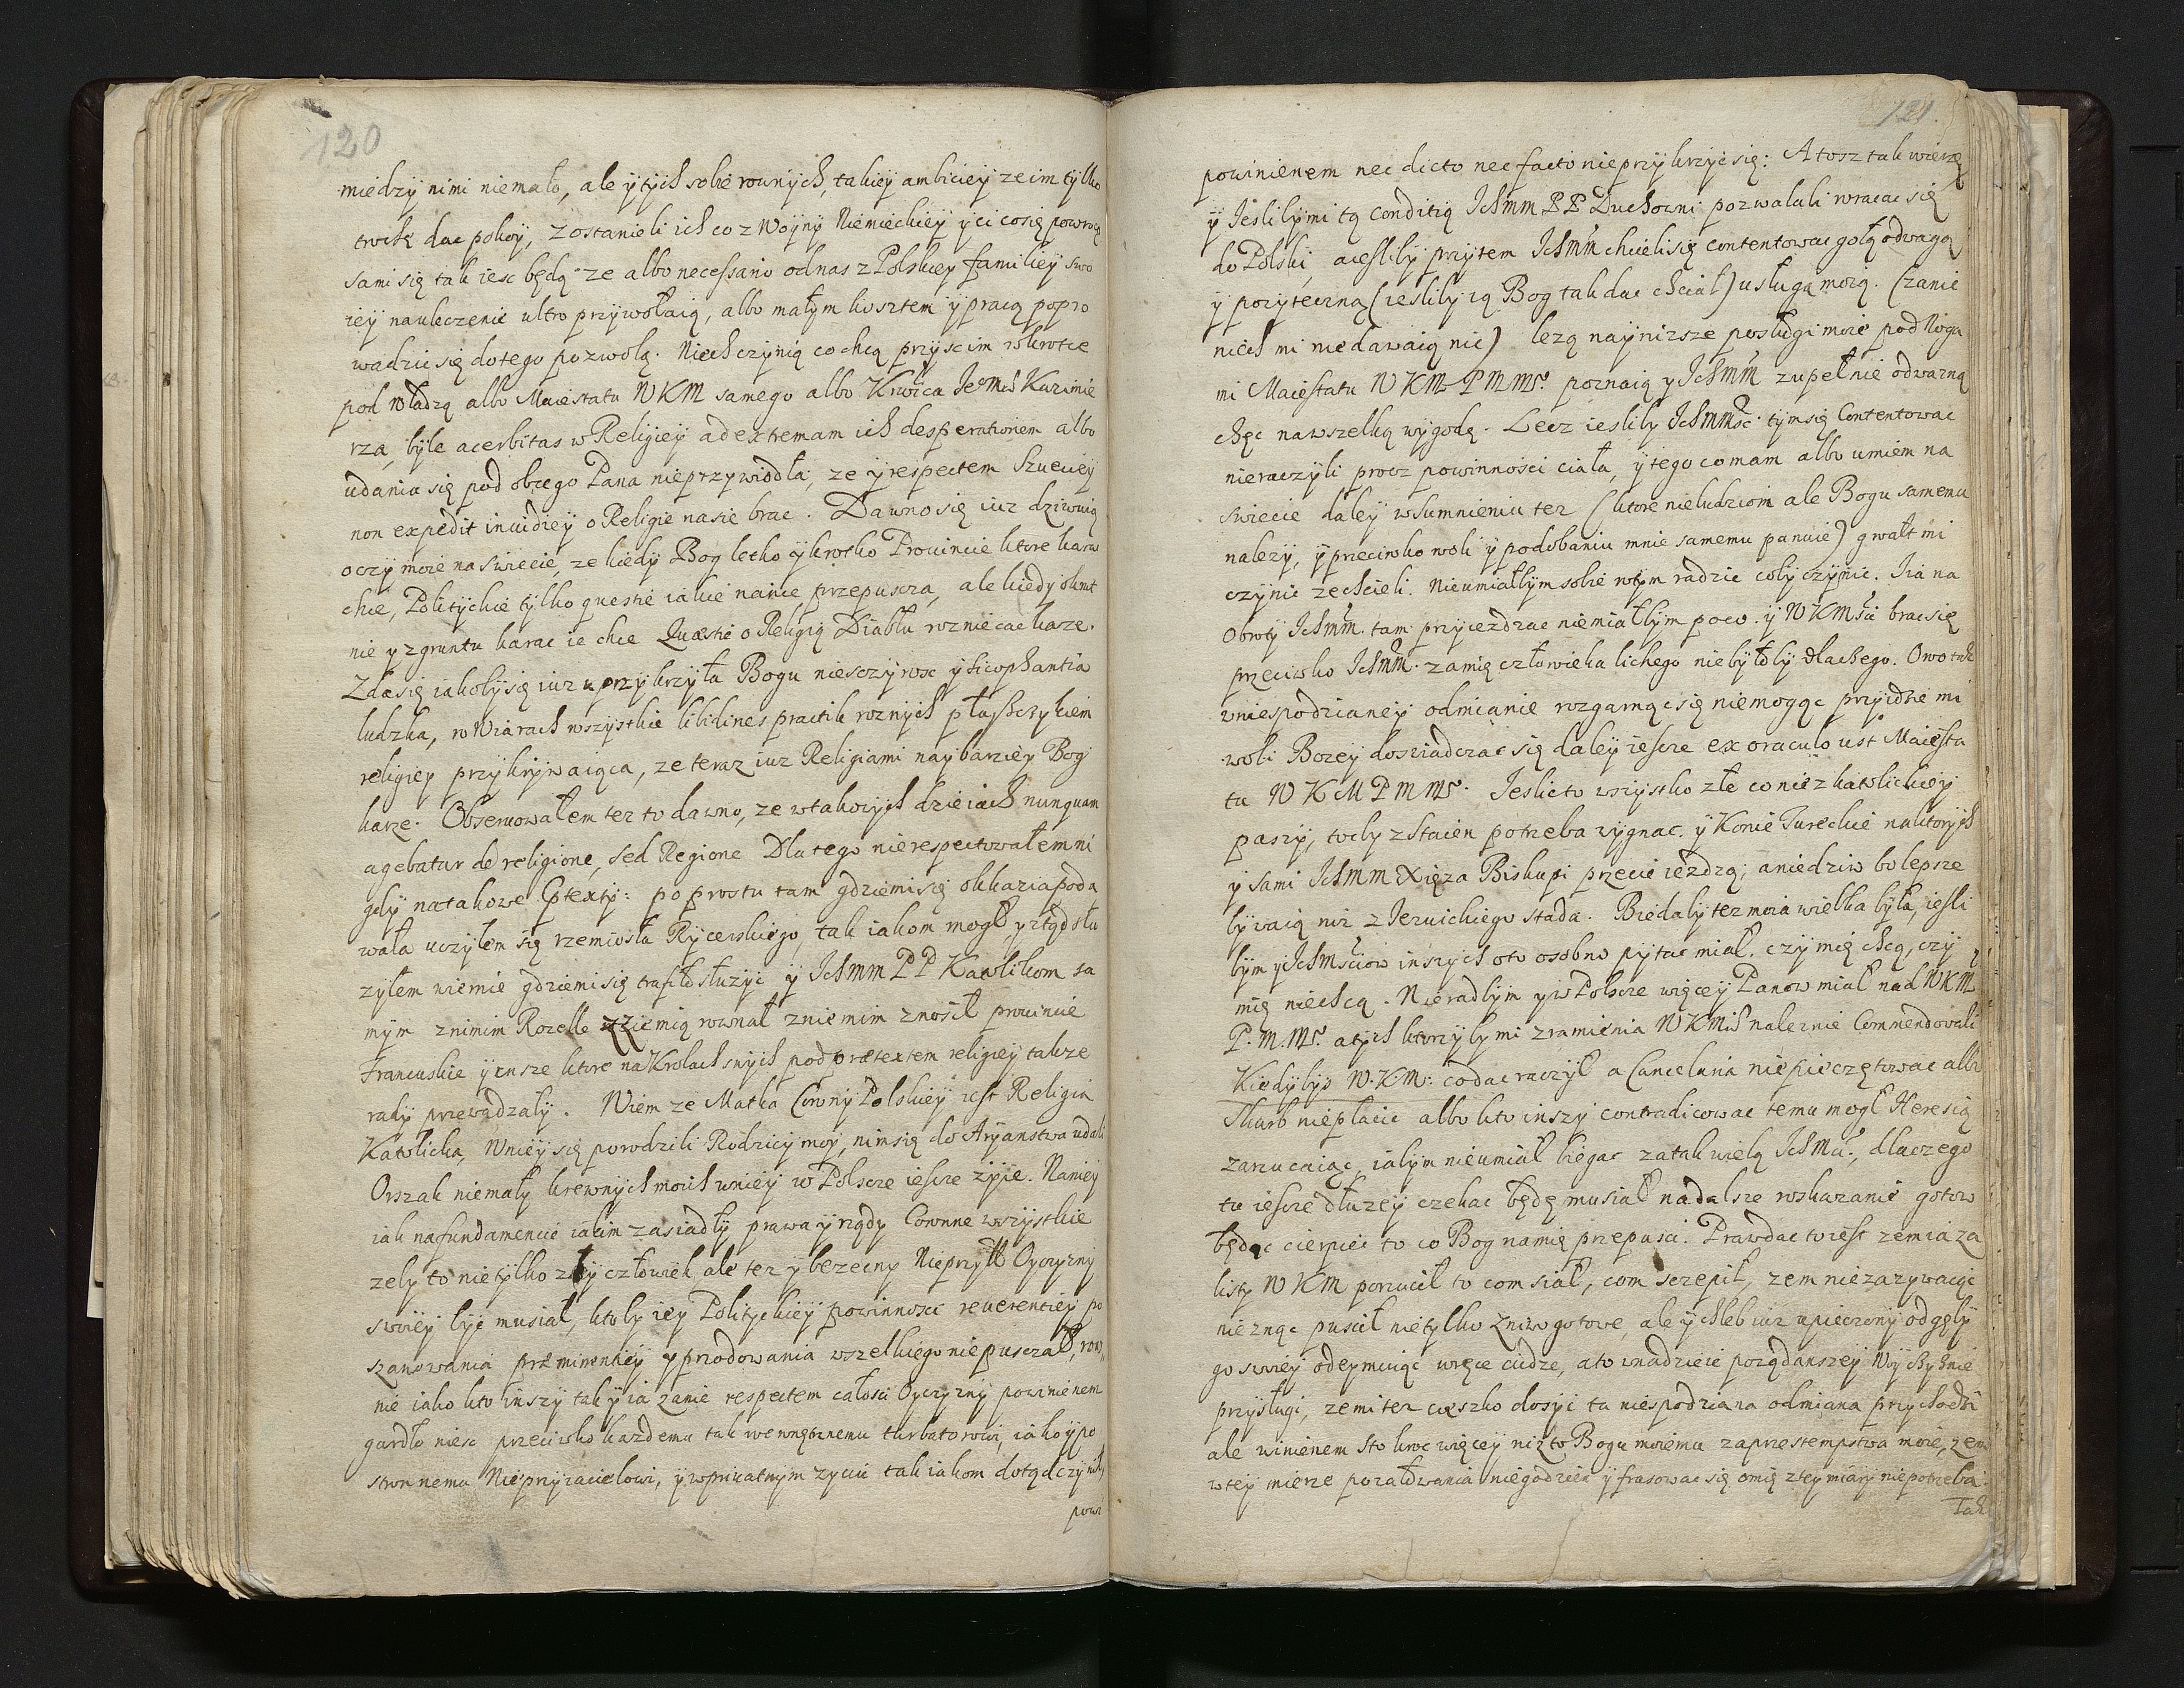 120
miedzy nimi niemało, ale y tych sobie rownych, takiey ambiciey ze im tylko
trochę dac pokoy, zostanieli ich co z Woyny Niemieckiey y ci co się powrocą
sami się tak iesc będą ze albo necessario od nas z Polskiey familiey swo
iey nauleczenie ultro przywołaią, albo małym kosztem y pracą popro
wadzić się do tego pozwolą. Niech czynią co chcą przyscim wkrotce
pod władzą albo Maiestatu WKM samego albo Krolca Jemci Kazimie
rza, byle acerbitas w Religiey ad extremam ich desperationem albo
udania się pod obcego Pana nieprzywiodła, ze y respectem Szueciey
non expedit inuidiey o Religie nasie brac. Dawno się iuz dziwuią
oczy moie na swiecie, ze kiedy Bog letko y krotko Prouincie ktore karac
chce, Polityckie tylko questie iakie nanie przepuscza, ale kiedy okrut
nie y z gruntu karac ie chce Quæstie o Religią Diabłu rozniecac kaze.
Zda się iakoby się iuz uprzykrzyła Bogu niesczyrosc y sicophantia
ludzka, w Wiarach wszystkie libidines practik roznych płasczykiem
religiey przykrywaiąca, ze teraz iuz Religiami naybarziey Bog
karze. Obserwowałem tez to dawno, ze w takowych dzieiach nunquam
agebatur de religione, sed Regione Dlatego nierespectowałem ni
gdy natakowe Ptexty: po prostu tam gdziemisię okkazia poda
wała uczyłem się rzemiosła Rycerskiego, tak iakom mogł, y ztąd słu
zyłem wiernie gdziemisię trafiło słuzyc y IchMM PP Katolikom sa
mym z nimim Rozelle z ziemią rownał z niemim znosił prouincie
Francuskie y insze ktore na Krolach swych pod prætextem religiey takze
rady przewądzały. Wiem ze Matka Corony Polskiey iest Religia
Katolicka, W niey się porodzili Rodzicy moy, nim się do Aryanstwa udali
Orszak niemały krewnych moich w niey w Polscze iescze zyie. Naniey
iak nafundamencie iakim zasiadły prawa y rządy Coronne wszystkie
zeby to nietylko zły człowiek, ale tez y bezecny Nieprzyil Oyczyzny
swoiey byc musiał, ktoby iey Polityckiey powinnosci reuerentiey po
szanowania præminentiey y przodowania wszelkiego niepusczał, row
nie iako kto inszy tak y ia zanie respectem całosci Oyczyzny powinienem
gardło niesc przeciwko kazdemu tak wewnętrznemu turbatorowi, iako y po
stronnemu Nieprzyiacielowi, y w priuatnym zyciu tak iakom dotąd czynił,
powi
121.
powinienem nec dicto nec facto nie przykrzyc się: A tosz tak wierzę
y Jeslibymi tą conditią IchMM PP Duchowni pozwalali wracac się
do Polski, a iesliby przytem IchMM chcieli się contentowac gołą odwagą
y pozyteczną (iesliby ią Bog tak dac chciał) usługą moią. (zanie
niech mi niedawaią nic) lezą naynizsze posługi moie pod Noga
mi Maiestatu WKM PMMS. poznaią y IchMM zupełnie odwazną
chęc nawszelką wygodę. Lecz iesliby IchMMsc. tym się contentowac
nieraczyli procz powinnosci ciała, y tego co mam albo umiem na
swiecie daley w sumnieniu tez (ktore nieludziom ale Bogu samemu
nalezy, y przeciwko woli y podobaniu mnie samemu panuie) gwałt mi
czynic zechcieli. Nieumiałbym sobie w tym radzic coby czynic. Iza na
Obroty IchMM. tam przyiezdzac niemiałbym poco. y WKMsci brac się
przeciwko IchMM. zamię człowieka lichego nie byłoby dlaczego. Owo tak
w niespodzianey odmianie rozgarnąc się niemogąc przyidzie mi
woli Bozey doswiadczac się daley iescze ex oraculo ust Maiesta
tu WKM PMMS. Jeslieto wszystko złe co nie z katolickiey
paszy, toby z Staien potrzeba wygnac y Konie Tureckie naktorych
y sami IchMM Xięza Biskupi przecie iezdzą; a niedziw bo lepsze
bywaią niz z Jerwickiego stada. Biedaby tez moia wielka była, iesli
bym y IchMsciow inszych oto osobno pytac miał. czy mię chcą, czy
mię niechcą. Nieradbym y w Polscze więcey Panow miał nad WKM
P.M.MS. a tych ktorzyby mi z ramienia WKMci naleznie Commendowali
Kiedybys W.KM: co dac raczył a Cancelaria niepieczętowac albo
Skarb niepłacic albo kto inszy contradicowac temu mogł Heresią
zarzucaiąc, iabym nieumiał biegac za tak wielą IchMci., dlaczego
tu iescze dłuzey czekac będę musiał nadalsze roskazanie gotow
będąc cierpiec to co Bog namię przepusci. Prawdac to iest zem ia za
listy WKM porzucił to com siał, com sczepił, zem niezazywaiąc
nieznąc puscił nietylko zniwo gotowe, ale y chleb iuz upieczony od gęby
go swoiey odeymuiąc w ręce cudze, a to w nadzieie pożądanszey Oyczyznie
przysługi, ze mi tez cięszko dosyc ta niespodziana odmiana przychodzi
ale winienem sto kroc więcey niz to Bogu moiemu za przestempstwa moie, zem
w tey mierze pozałowania niegodzien y frasowac się o mię z tey miary niepotrzeba.
Tak